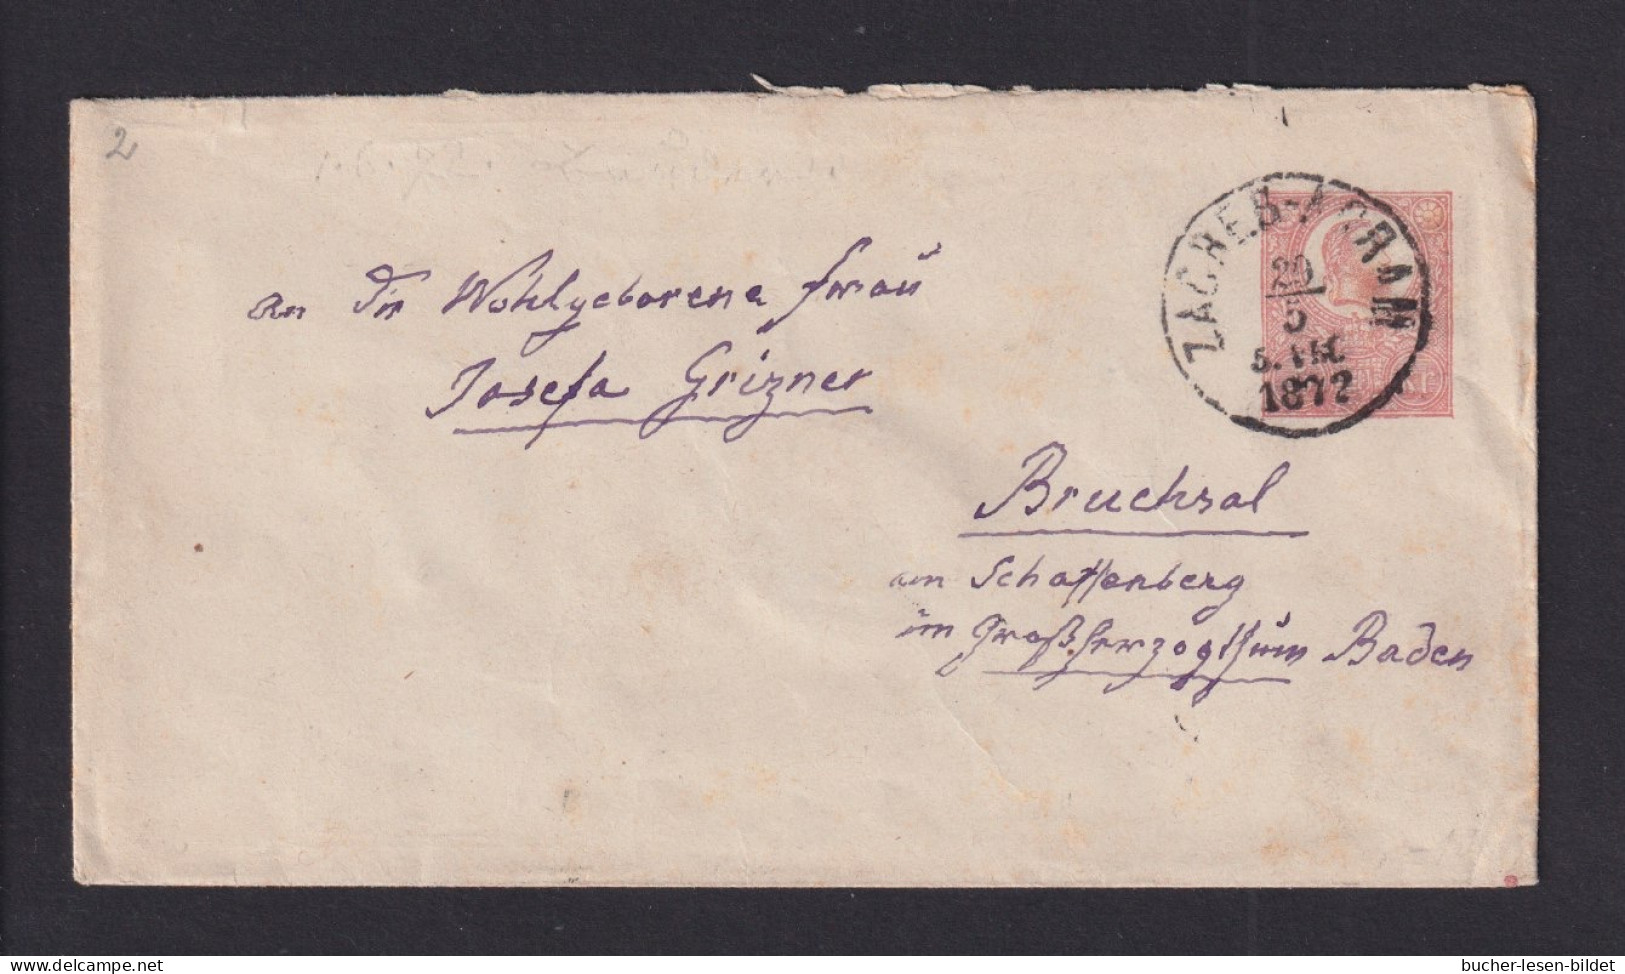 2
ZAGREB-AGRAM
20
5
1872
An die Wohlgeborene Frau
Josefa Grizner
Bruchsal
am Schaffenberg
im Großherzogthum Baden
delcampe.net
bucher-lesen-bildet